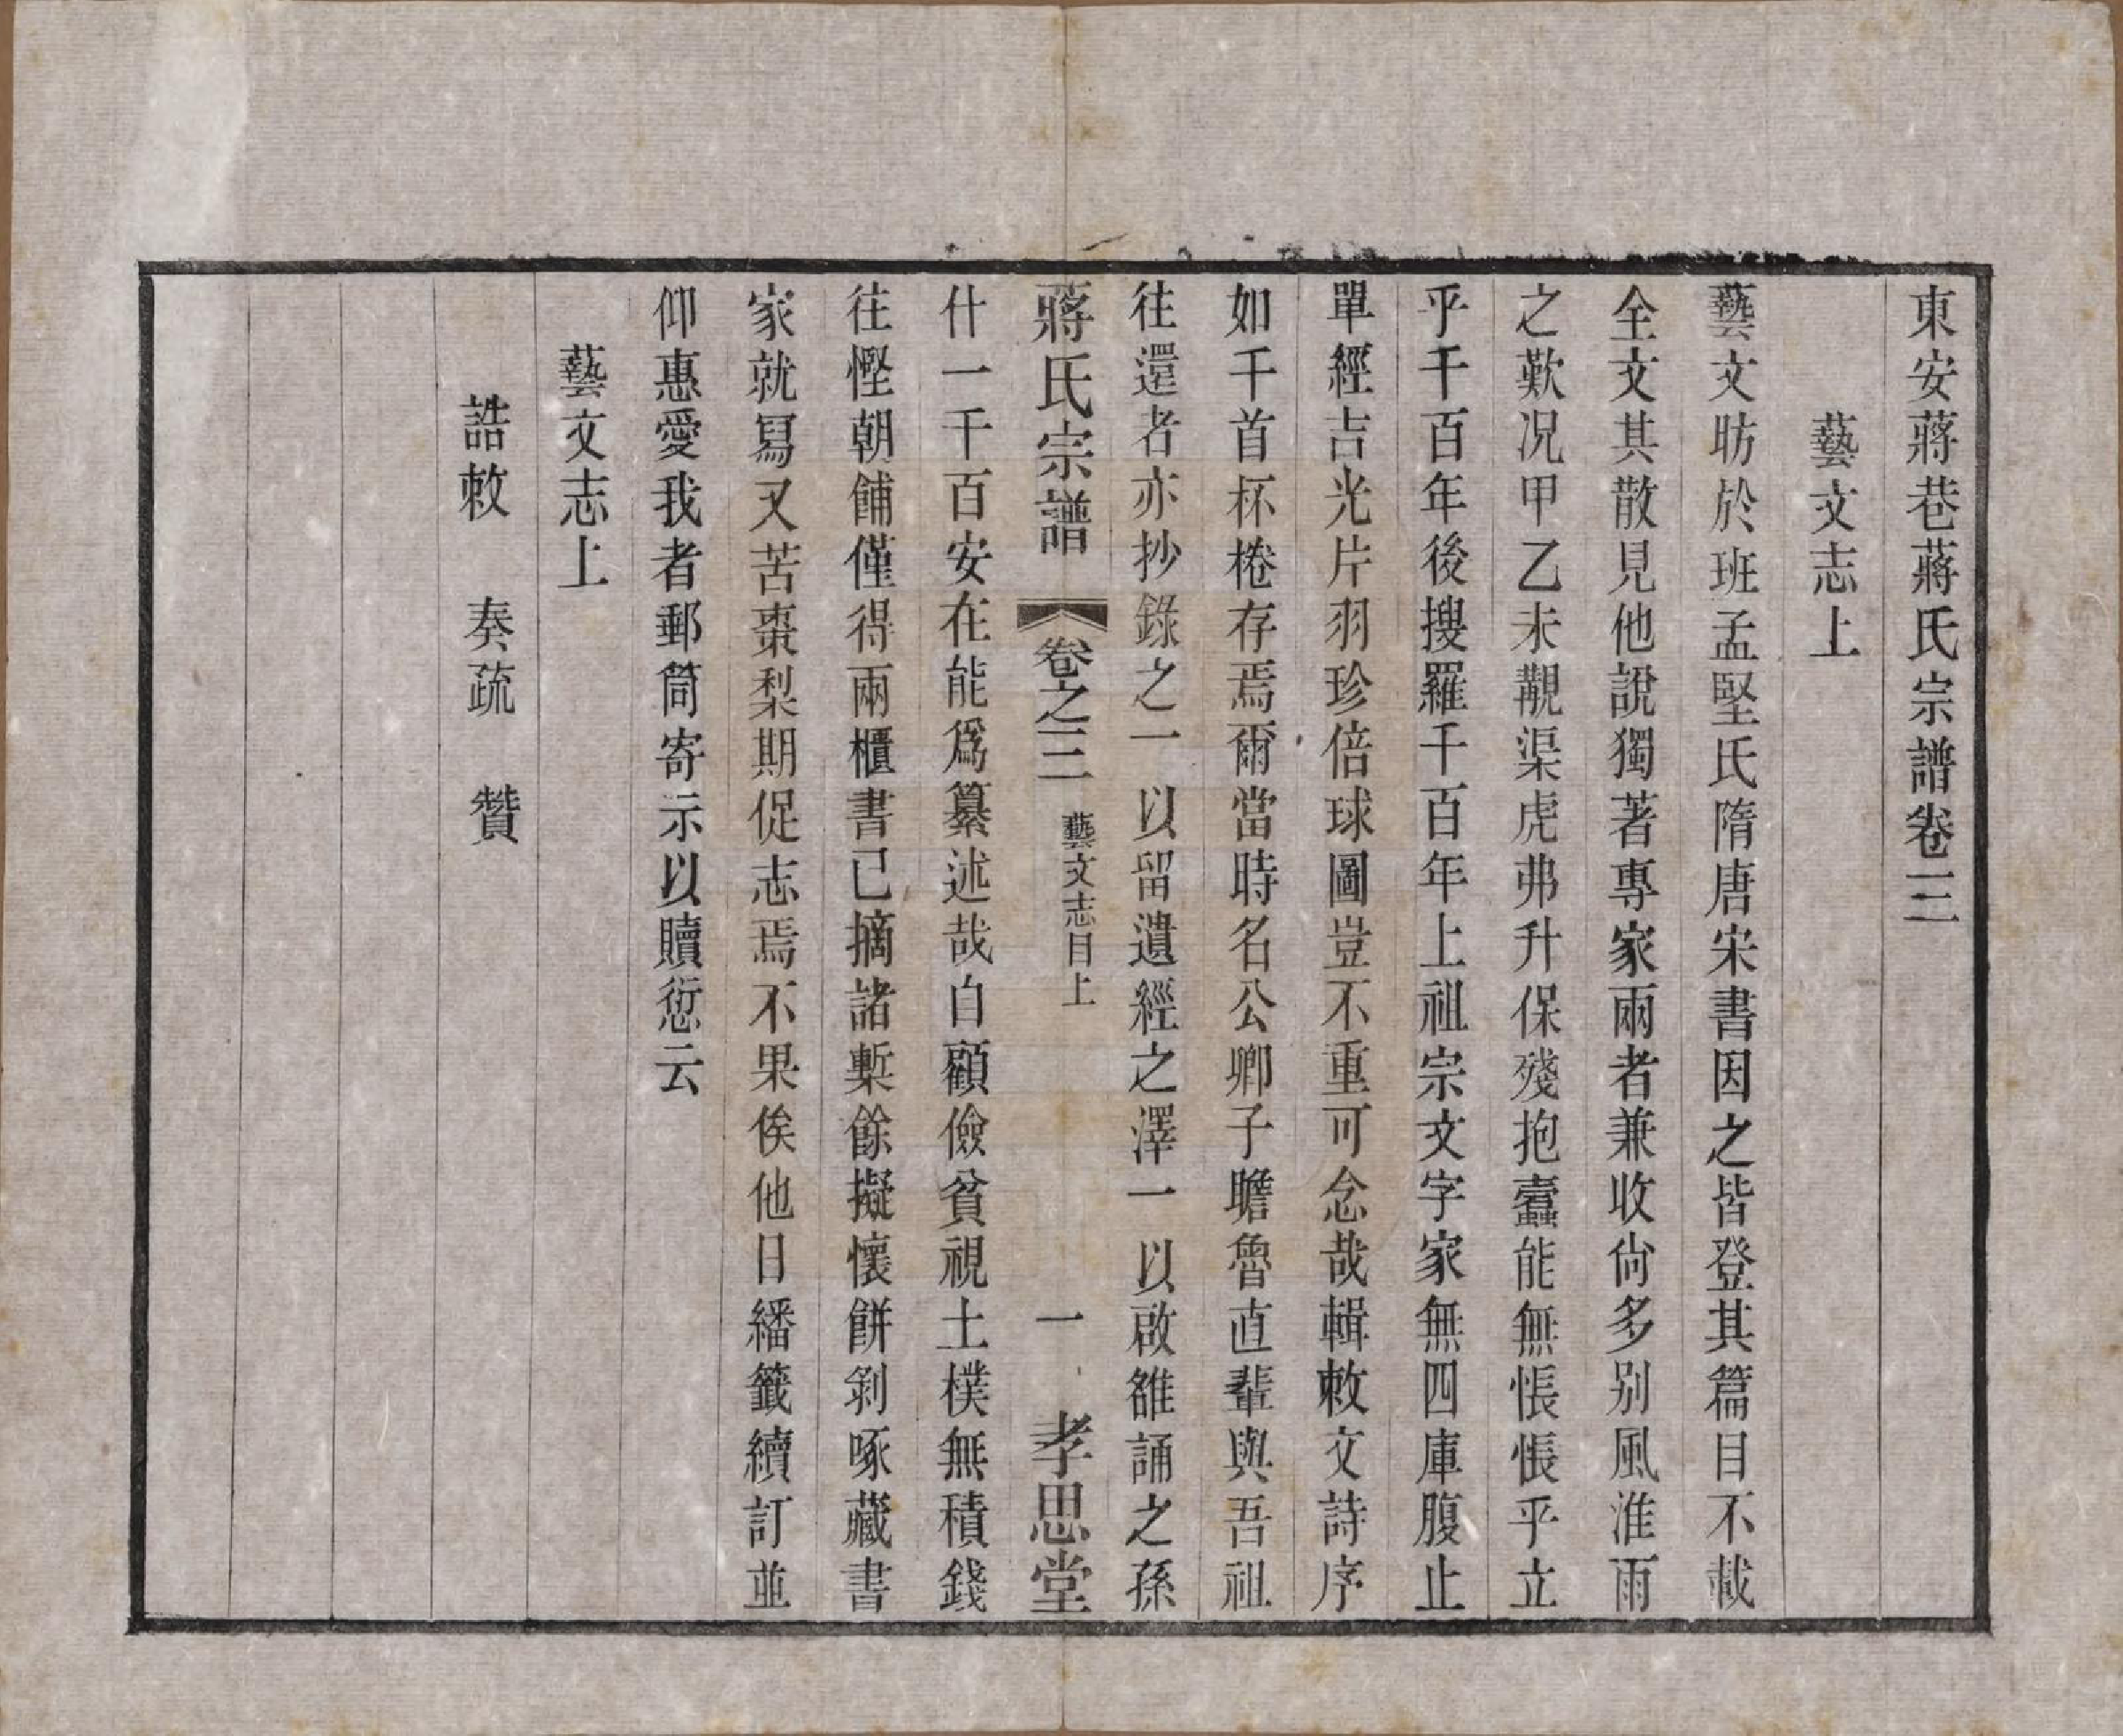 東安蔣巷蔣氏宗譜卷三
藝文志上
藝文昉於班孟堅氏隋唐宋書因之皆登其篇目不載
全文其散見他說獨著專家兩者兼收尙多别風淮雨
之歎况甲乙未覩渠虎弗升保殘抱蠹能無悵悵乎立
乎千百年後搜羅千百年上祖宗文字家無四庫腹止
單經吉光片羽珍倍球圖豈不重可念哉輯敕文詩序
如千首杯棬存焉爾當時名公卿子瞻魯直輩與吾祖
往還者亦抄錄之一以留遺經之澤一以啟雒誦之孫
蔣氏宗譜 卷之三 藝文志目上 一 孝思堂
什一千百安在能爲纂述哉自顧儉貧視土樸無積錢
往慳朝餔僅得兩櫃書已摘諸槧餘擬懷餅剝啄藏書
家就冩又苦棗梨期促志焉不果俟他日繙籤續訂並
仰惠愛我者郵筒寄示以贖愆云
藝文志上
誥敕 奏疏 贊